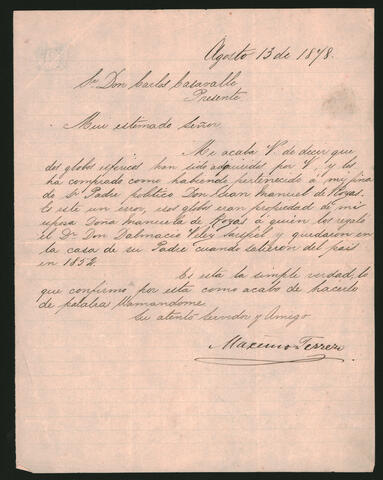 Agosto 13 de 1878.
Sr. Don Carlos Casavalle
Presente
Mui estimado Señor,
Me acaba V. de decir que
dos globos esfericos han sido adquiridos por V. y los
ha comprado como habiendo pertenecido á mi
Sr. Padre politico Don Juan Manuel de Rozas.
Es este un error, esos globos eran propiedad de mi
esposa Doña Manuela de Rozas á quien los regaló
el Dr. Don Dalmacio Velez Sarsfield y quedaron en
la casa de su Padre cuando salieron del pais
en 1852.
Es esta la simple verdad, lo
que confirmo por esta como acabo de hacerlo
de palabra
Su atento Servidor y Amigo
Maximo Terrero